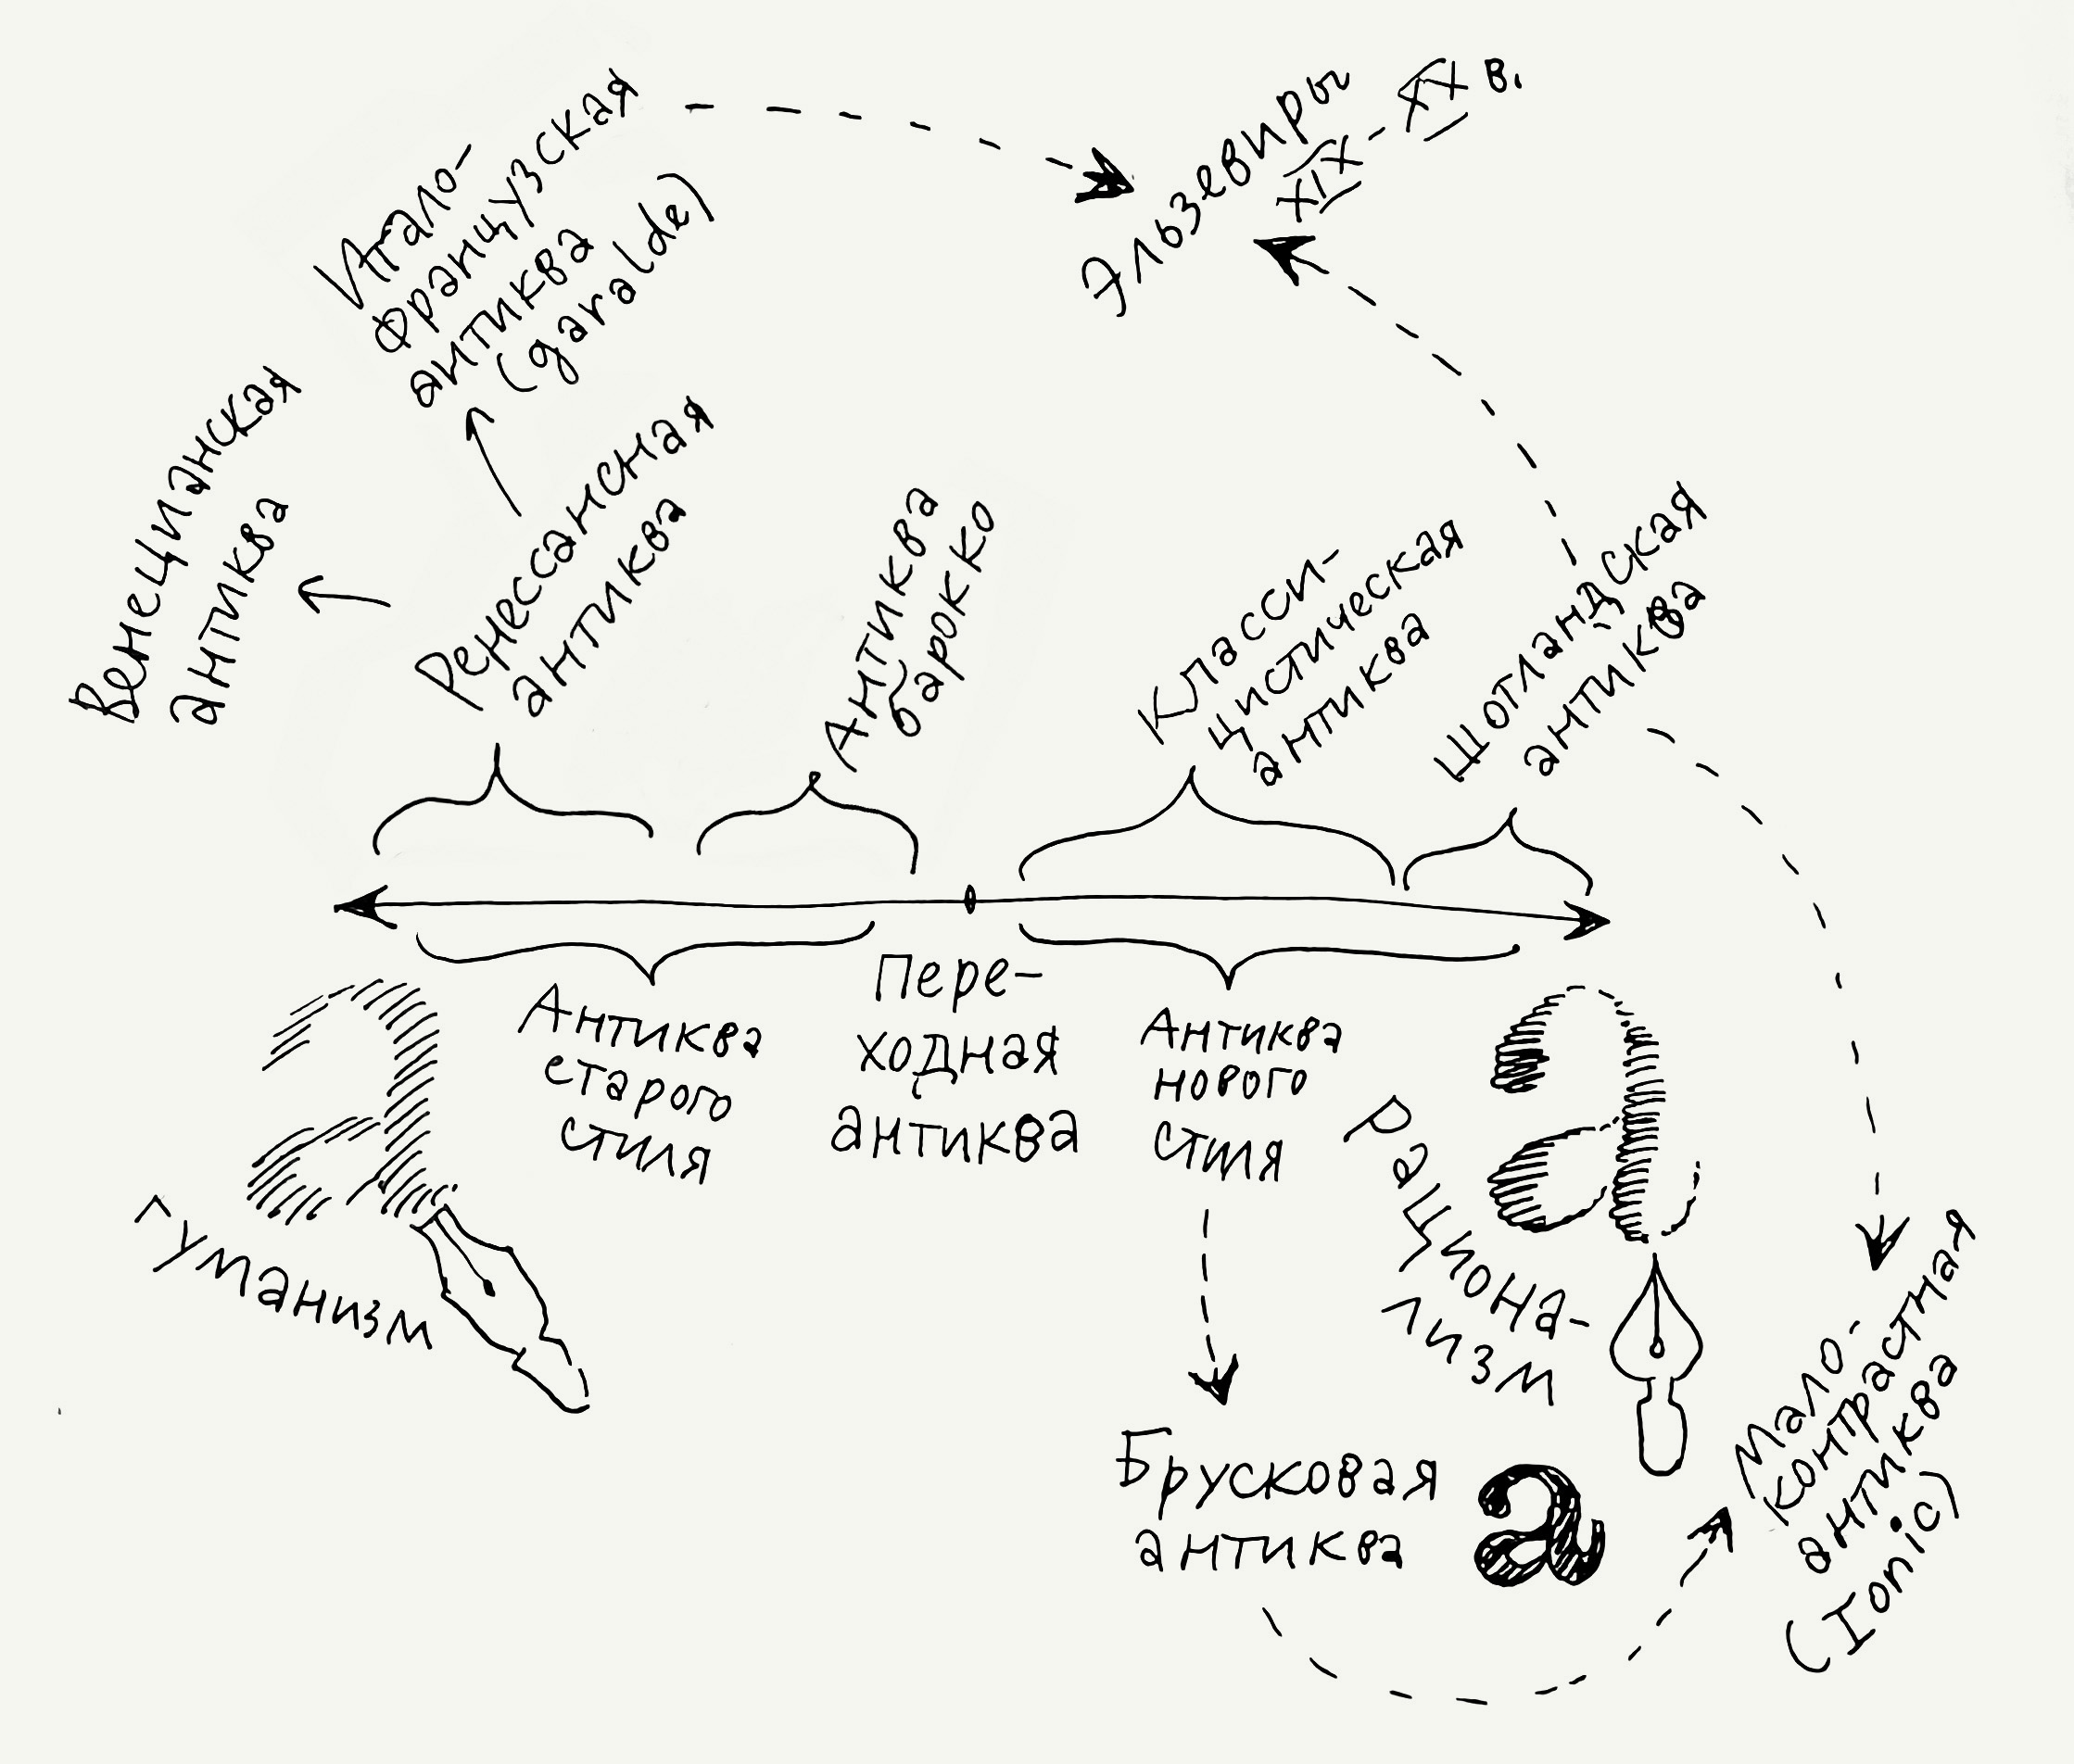 Венецианская
антиква
Итало-
французская
антиква
(garalde)
Эльзевиры
XIX - XX в.
Ренессансная
антиква
Антиква
барокко
Класси-
цистическая
антиква
Шотландская
антиква
Антиква
старого
стиля
Пере-
ходная
антиква
Антиква
нового
стиля
Гуманизм
Рациона-
лизм
a
Брусковая
антиква
a
Мало-
контрастная
антиква
(Ionic)